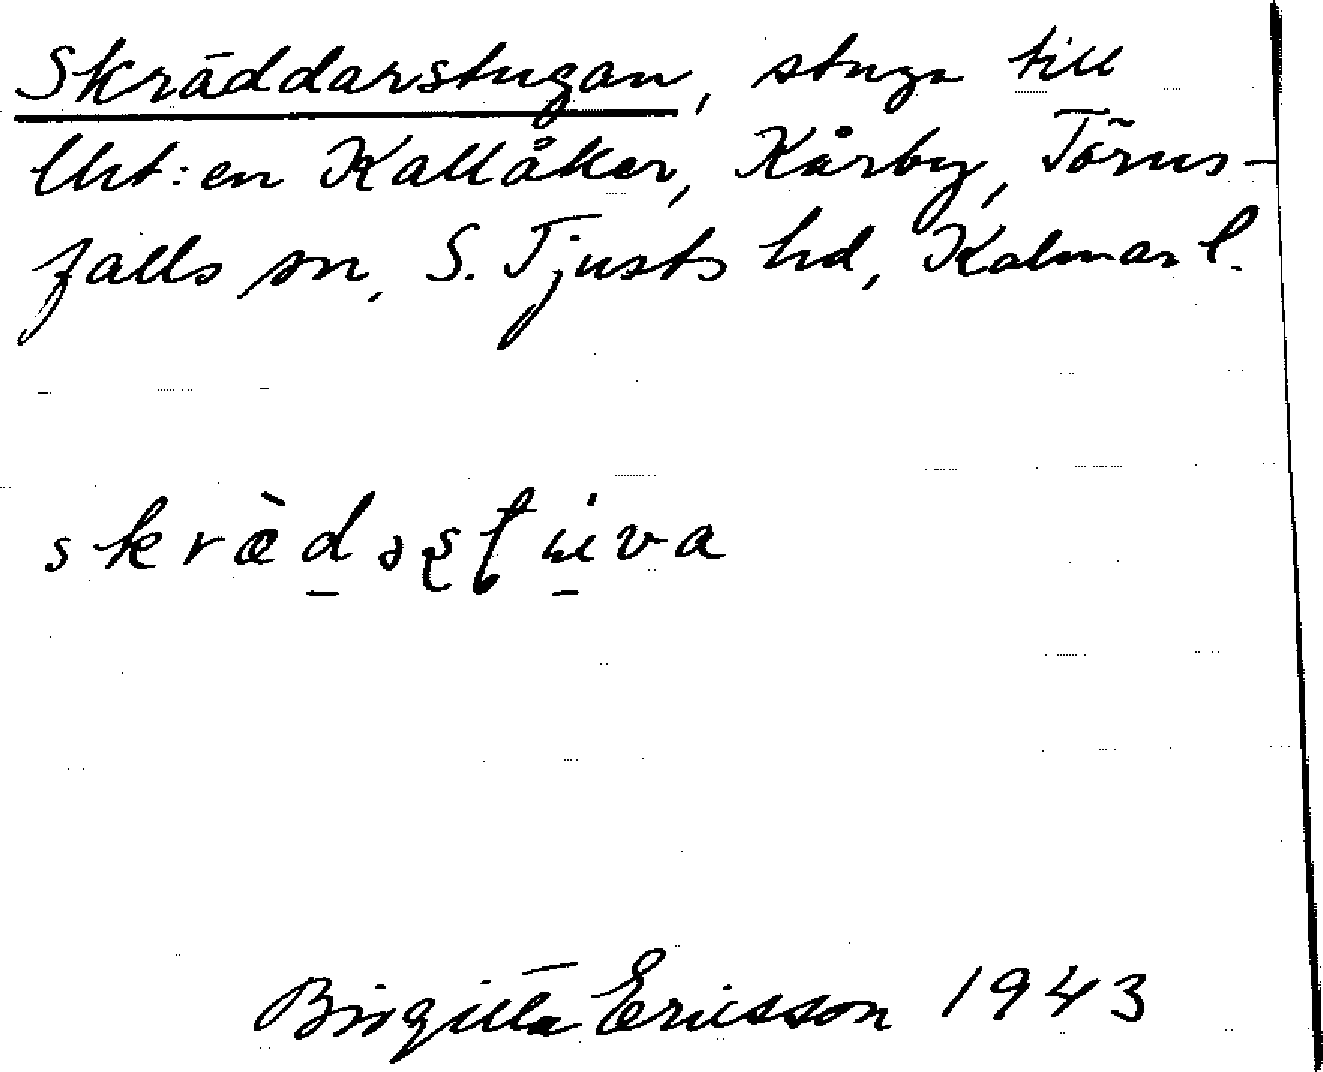 Skräddarstugan, stuga till
lht:en Kallåker, Kårby, Törns-
falls sn, S. Tjusts hd, Kalmar l.
skrὰdəstu̇va
Birgitta Ericsson 1943